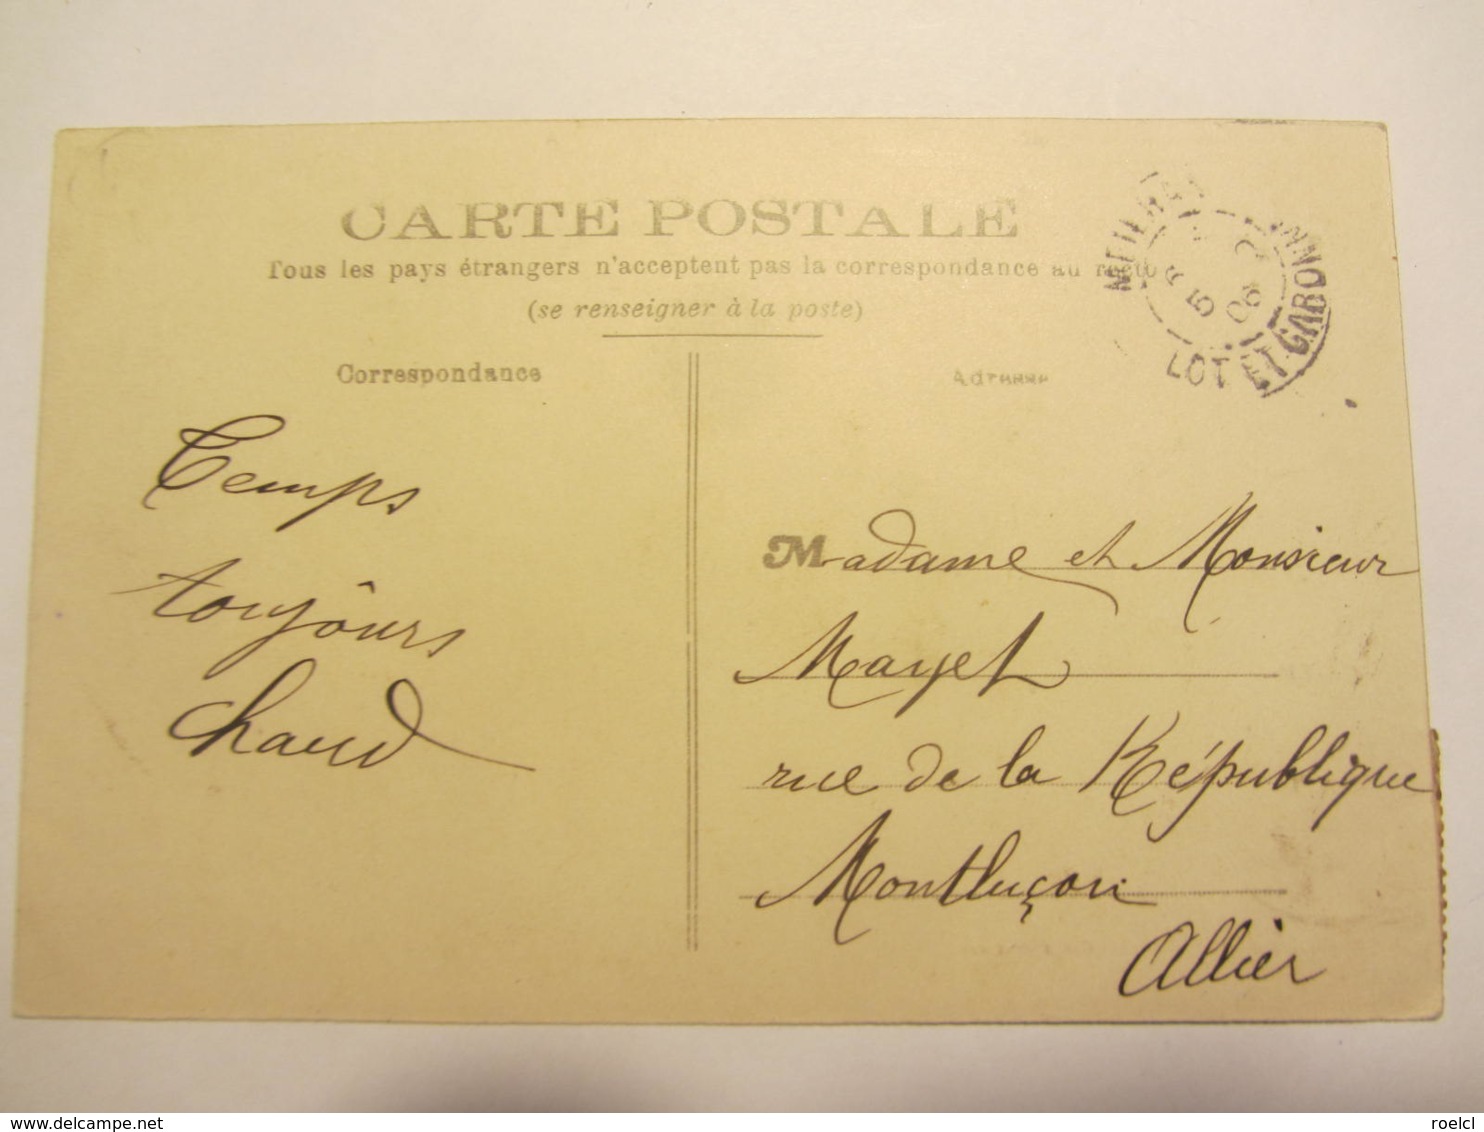 CARTE POSTALE
Tous les pays étrangers n'acceptent pas la correspondance au recto
(se renseigner à la poste)
Correspondance
Adresse
LOT ET GARONNE
06
Temps
toujours
chaud
Madame et Monsieur
Mayet
rue de la République
Montluçon
Allier
www.delcampe.net
roelcl